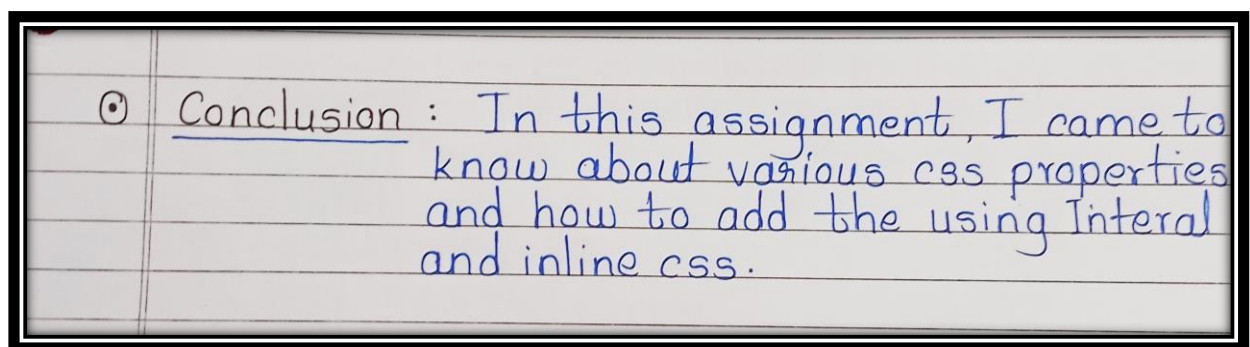 Conclusion : In this assignment, I came to
know about various css properties
and how to add the using Interal
and inline css.